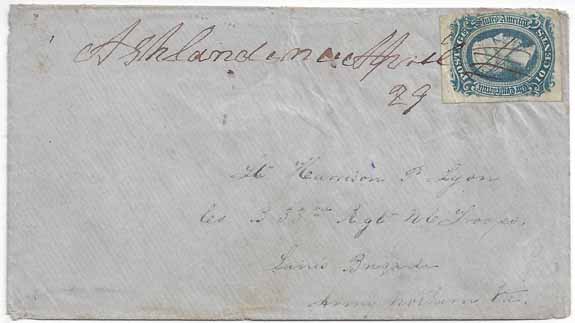 Ashland nc April
29
POSTAGE The Confederate States America TEN CENTS
Lt Harrison P. Lyon
Co B 33rd Regt NC Troops
Lane's Brigade
Army Northern Va.